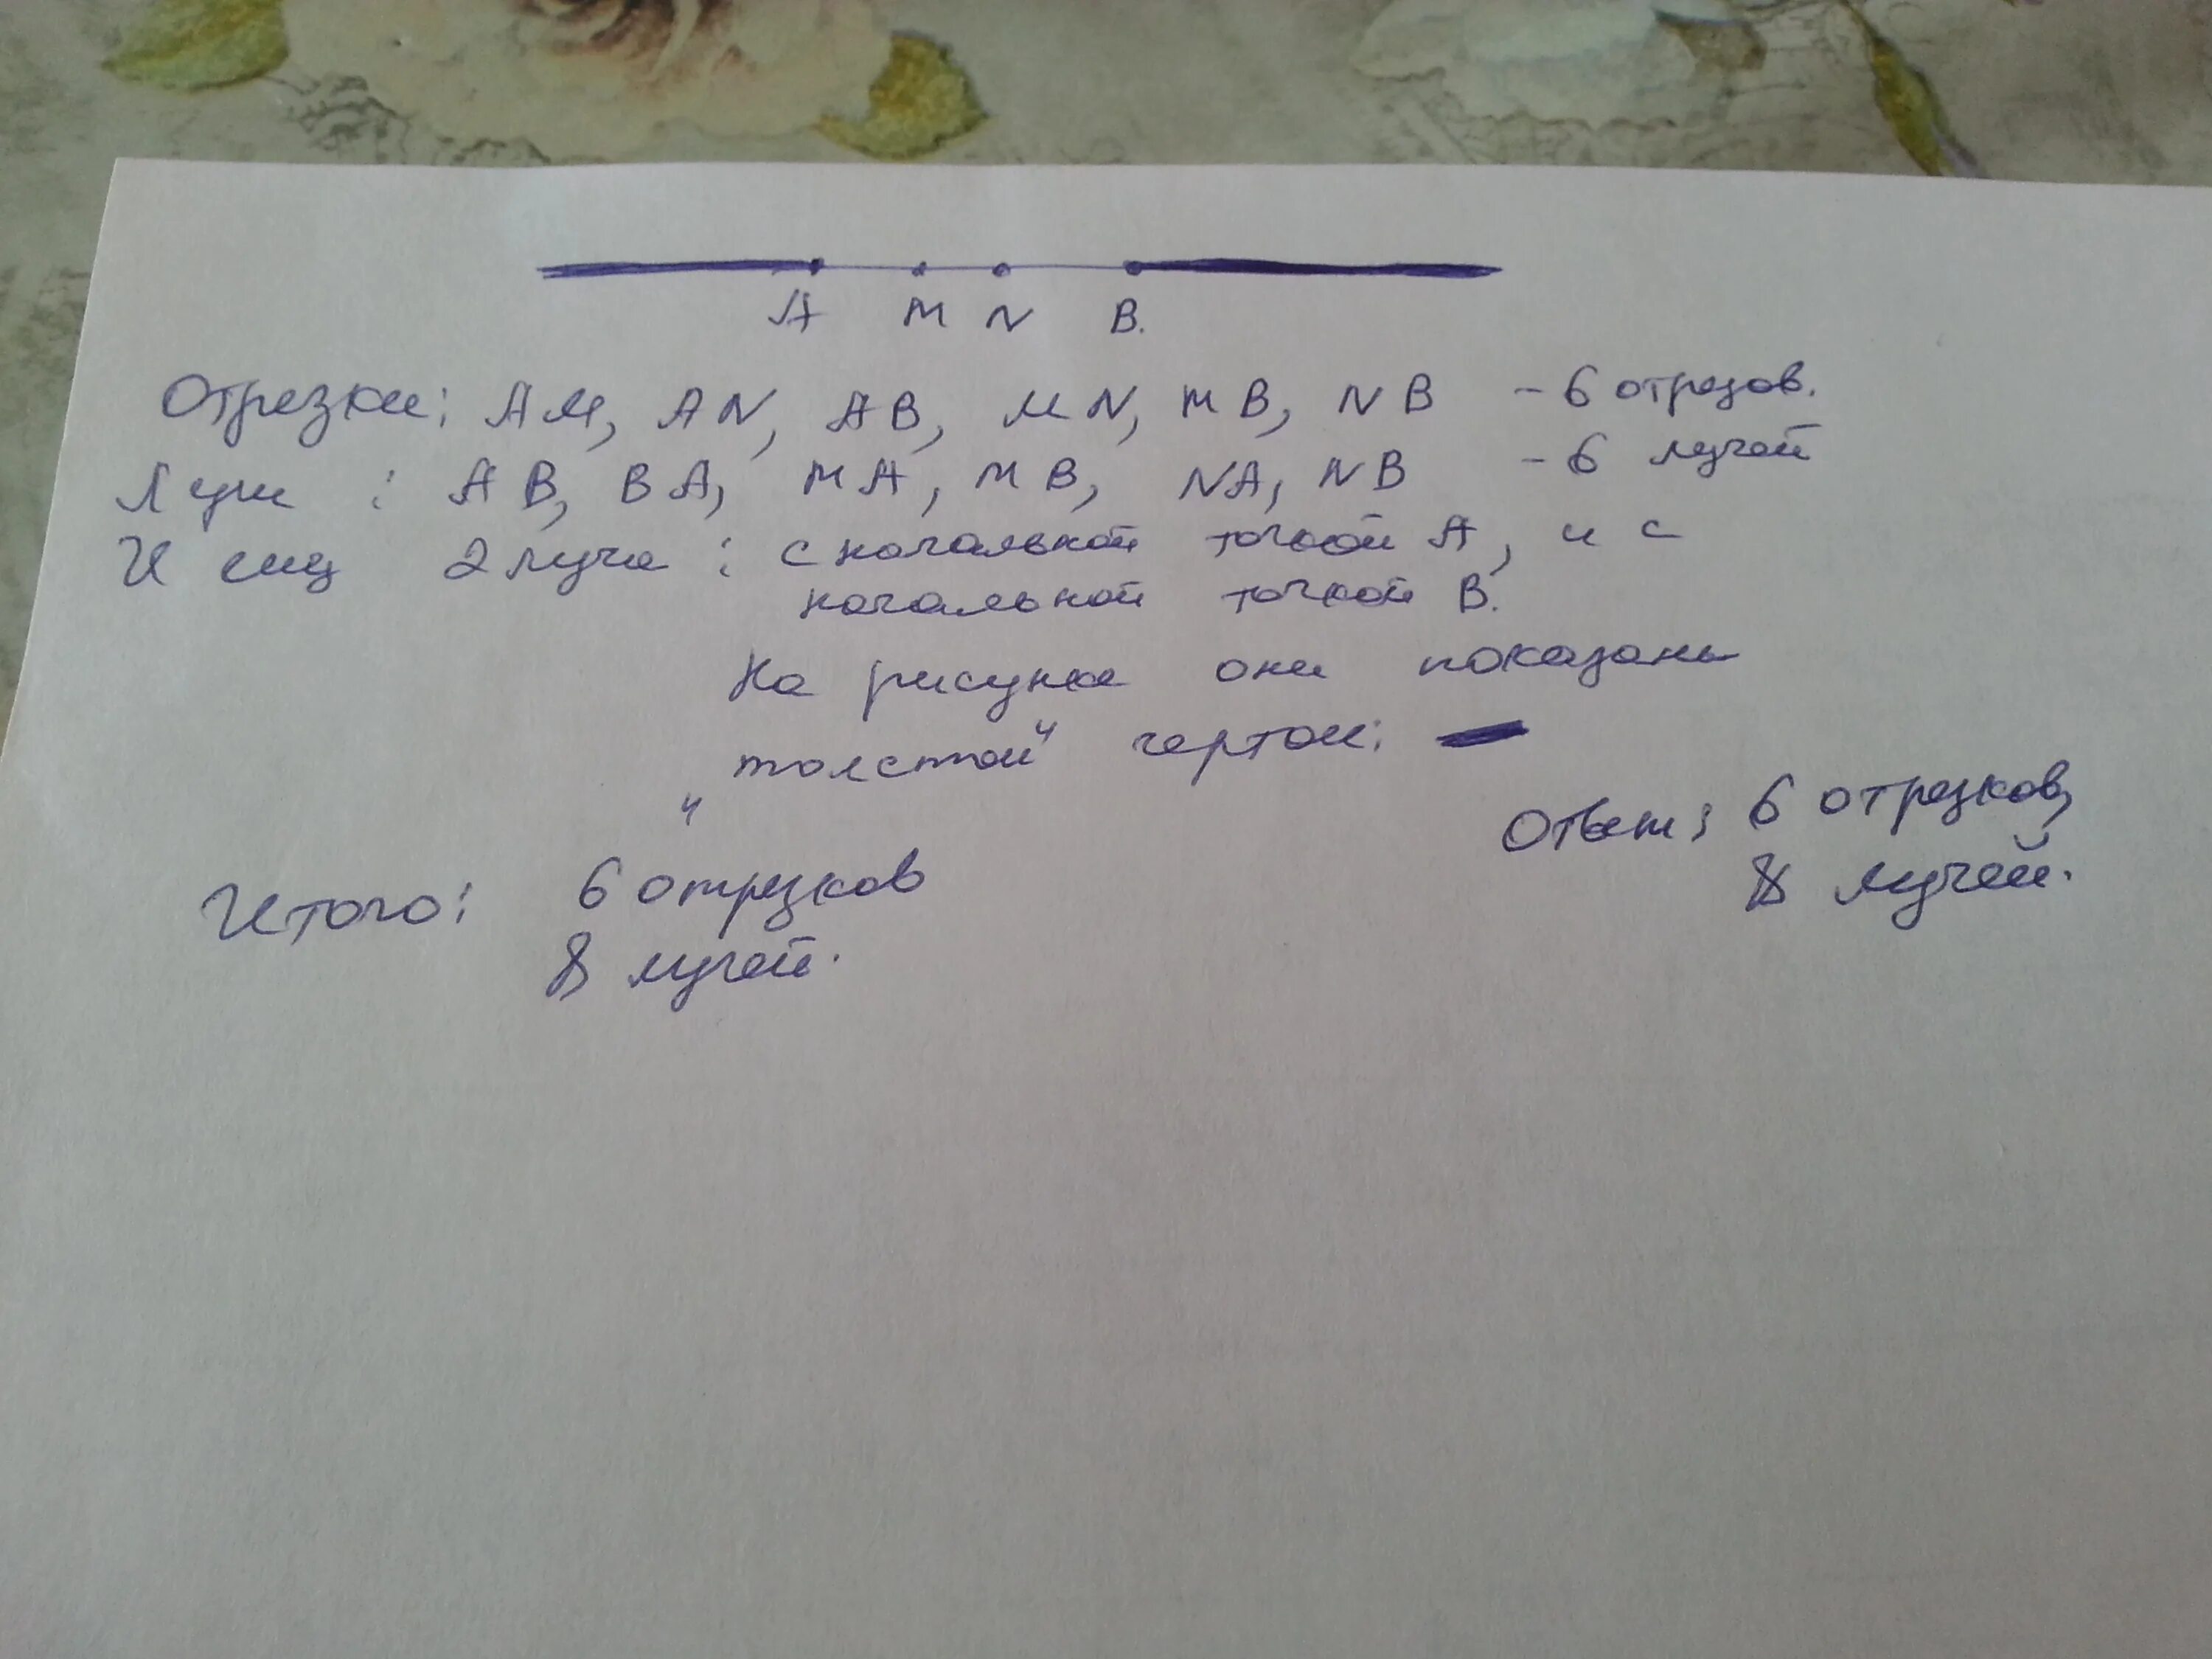 А М N В.
Отрезки: АМ, АN, АВ, МN, МВ, NВ – 6 отрезов.
Лучи : АВ, ВА, МА, МВ, NА, NВ – 6 лучей
И ещ 2 луча : с начальной точкой А, и с
начальной точкой В.
На рисунке они показаны
"толстой" чертой:
Итого: 6 отрезков
8 лучей.
Ответ: 6 отрезков,
8 лучей.